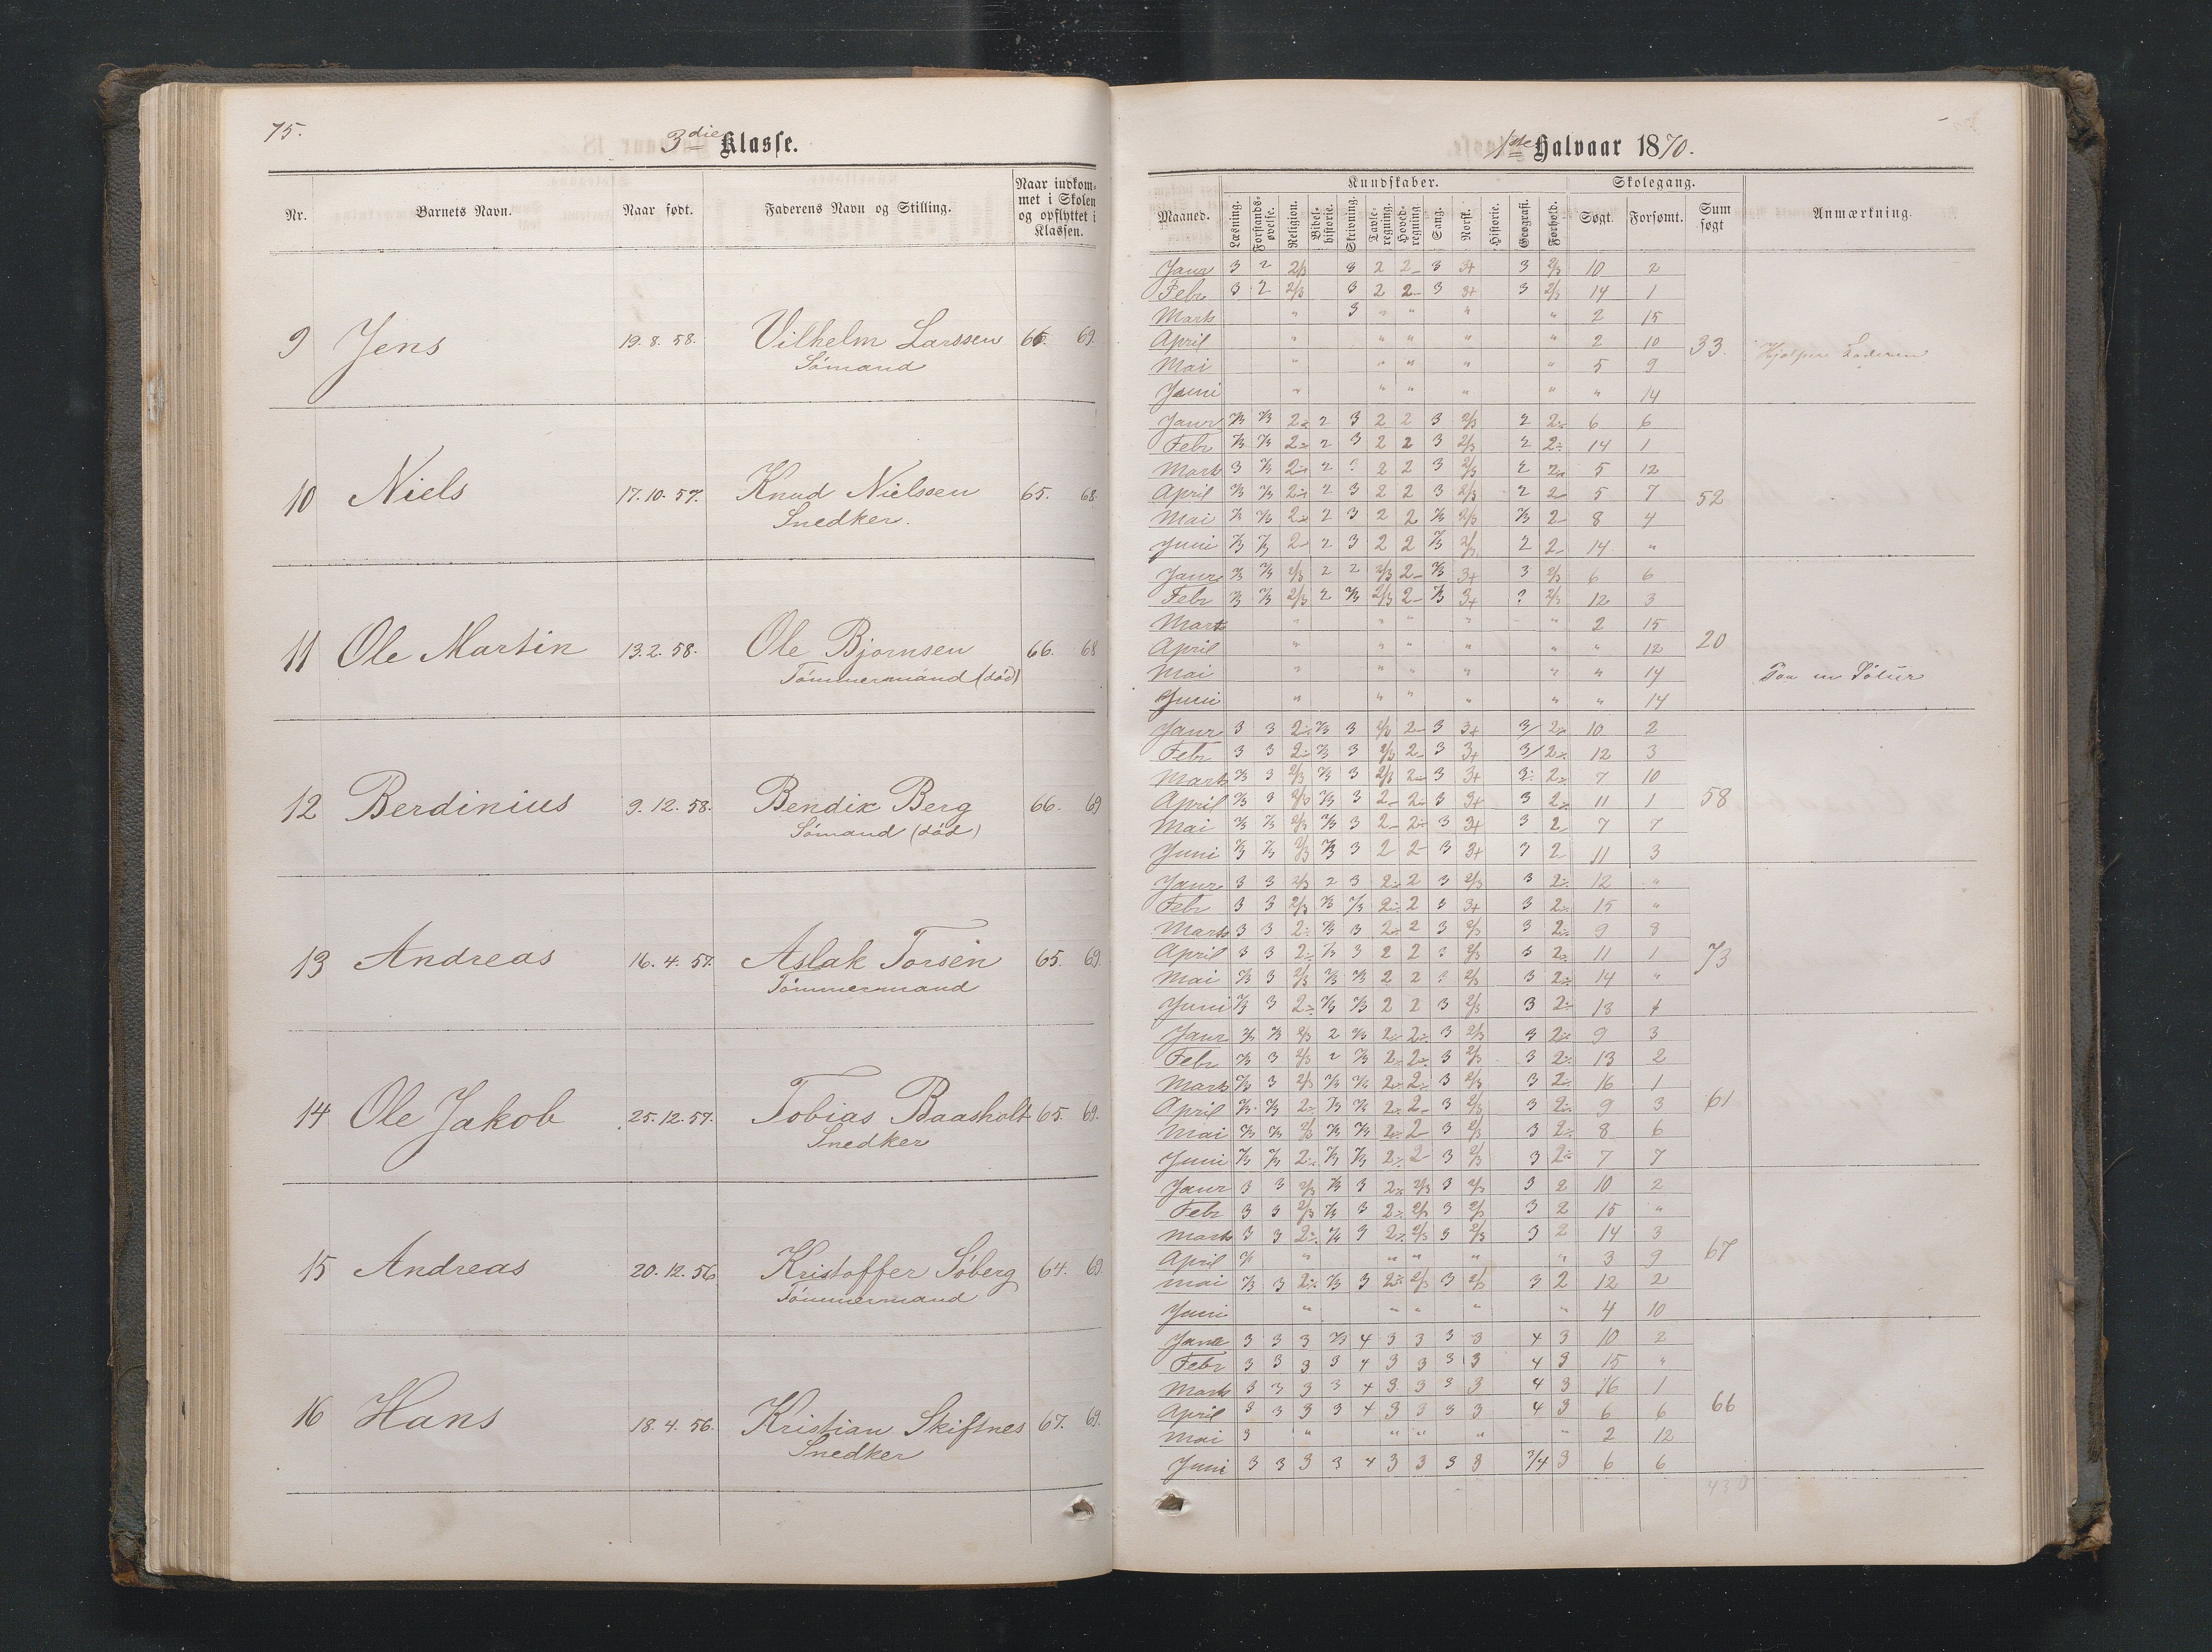 75.
3die Klasse.
Nr. Barnets Navn. Naar født. Faderens Navn og Stilling. Naar indkom-
met i Skolen
og opflyttet i
Klassen.
9 Jens 19. 8. 58. Vilhelm Larssen 65. 69.
Sömand
10 Niels 17. 10. 57. Knud Nielssen 65. 68.
Snedker.
11 Ole Martin 13. 2. 58. Ole Bjornsen 66. 68
Tömmermand (död)
12 Berdinius 9. 12. 58. Bendix Berg 66. 69
Sömand (död)
13 Andreas 16. 4. 57. Aslak Torsen 65. 69.
Tömmermand
14 Ole Jakob 25. 12. 57. Tobias Baasholt 65. 69.
Snedker
15 Andreas 20. 12. 56 Kristoffer Söberg 64. 69.
Tömmermand
16 Hans 18. 4. 56. Kristian Skifsnes 67. 69.
Snedker
1ste Halvaar 1870.
Kundskaber. Skolegang.
Maaned. Læsning. Forstands-øvelse. Religion. Bibel-historie. Skrivning. Tavle-regning. Hoved-regning Sang. Norsk. Historie. Geografi. Forhold. Søgt. Forsømt. Sum søgt Anmærkning.
Janr 3 2 2/3 3 2 2- 3 3+ 3 2/3 10 2
Febr 3 2 2/3 3 2 2- 3 3+ 3 2/3 14 1
Marts " 3 " " " " 2 15
April " " " " " 2 10 33.
Mai " " " " " 5 9
Juni " " " " " " 14
Janr 2/3 2/3 2÷ 2 3 2 2 3 2/3 2 2÷ 6 6
Febr 2/3 2/3 2÷ 2 3 2 2 3 2/3 2 2÷ 14 1
Marts 3 2/3 2÷ 2 2 2 3 2/3 2 2÷ 5 12
April 2/3 2/3 2÷ 2 3 2 2 3 2/3 2 2- 5 7 52
Mai 2/3 2/3 2÷ 2 3 2 2 2/3 2/3 2/3 2- 8 4
Juni 2/3 2/3 2- 2 3 2 2 2/3 2/3 2 2- 14 "
Janr 2/3 2/3 2/3 2 2 2/3 2- 2/3 3+ 3 2/3 6 6
Febr 2/3 2/3 2/3 2 2/3 2/3 2- 2/3 3+ 2/3 12 3
Marts " " " " " 2 15
April " " " " " " 12 20
Mai " " " " " " 14 Paa en Sötur
Juni " " " " " " 14
Janr 3 3 2÷ 2/3 3 2/3 2- 3 3+ 3 2÷ 10 2
Febr 3 3 2÷ 2/3 3 2/3 2- 3 3+ 3 2÷ 12 3
Marts 2/3 3 2/3 2/3 3 2/3 2- 3 3+ 3 2÷ 7 10
April 2/3 3 2/3 2/3 3 2- 2÷ 3 3+ 3 2÷ 11 1 58
Mai 2/3 2/3 2/3 2/3 3 2- 2÷ 3 3+ 3 2 7 7
Juni 2/3 2/3 2/3 2/3 3 2 2- 3 3+ 3 2 11 3
Janr 3 3 2/3 2 3 2÷ 2 3 2/3 3 2÷ 12 "
Febr 3 3 2/3 2/3 2/3 2÷ 2 3 3+ 3 2÷ 15 "
Marts 3 3 2÷ 2/3 3 2÷ 2 3 2/3 3 2÷ 9 8
April 3 3 2÷ 2/3 3 2 2 2/3 3 2÷ 11 1 73
Mai 2/3 3 2/3 2/3 2/3 2 2 2/3 3 2÷ 14 "
Juni 2/3 3 2÷ 2/3 2/3 2 2 3 2/3 3 2÷ 13 1
Janr 2/3 2/3 2/3 2 2/3 2÷ 2÷ 3 2/3 3 2÷ 9 3
Febr 2/3 3 2/3 2 2/3 2÷ 2÷ 3 2/3 3 2÷ 13 2
Marts 2/3 3 2/3 2/3 2/3 2÷ 2÷ 3 2/3 3 2÷ 16 1
April 2/3 2/3 2÷ 2/3 2/3 2÷ 2- 3 2/3 3 2÷ 9 3 61
Mai 2/3 2/3 2/3 2/3 2/3 2÷ 2- 3 2/3 3 2÷ 8 6
Juni 2/3 2/3 2÷ 2/3 2/3 2÷ 2- 3 2/3 3 2÷ 7 7
Janr 3 3 2/3 2/3 3 2÷ 2/3 3 2/3 3 2 10 2
Febr 3 3 2/3 2/3 3 2÷ 2/3 3 2/3 3 2 15 "
Marts 3 3 2÷ 2/3 3 2÷ 2/3 3 2/3 3 2 14 3
April 2/3 " " " " " 3 9 67
Mai 2/3 3 2÷ 2/3 3 2÷ 2/3 3 2/3 3 2 12 2
Juni " " " " " 4 10
Janr 3 3 3 2/3 4 3 3 3 3 4 3 10 2
Febr 3 3 3 3 4 3 3 3 3 4 3 15 "
Marts 3 3 3 3 4 3 3 3 3 4 3 16 1
April 3 3 3 3 4 3 3 3 3 4 3 6 6 66
Mai 3 " " " " " 2 12
Juni 3 3 3 3 4 3 3 3 3 3/4 3 6 6
430